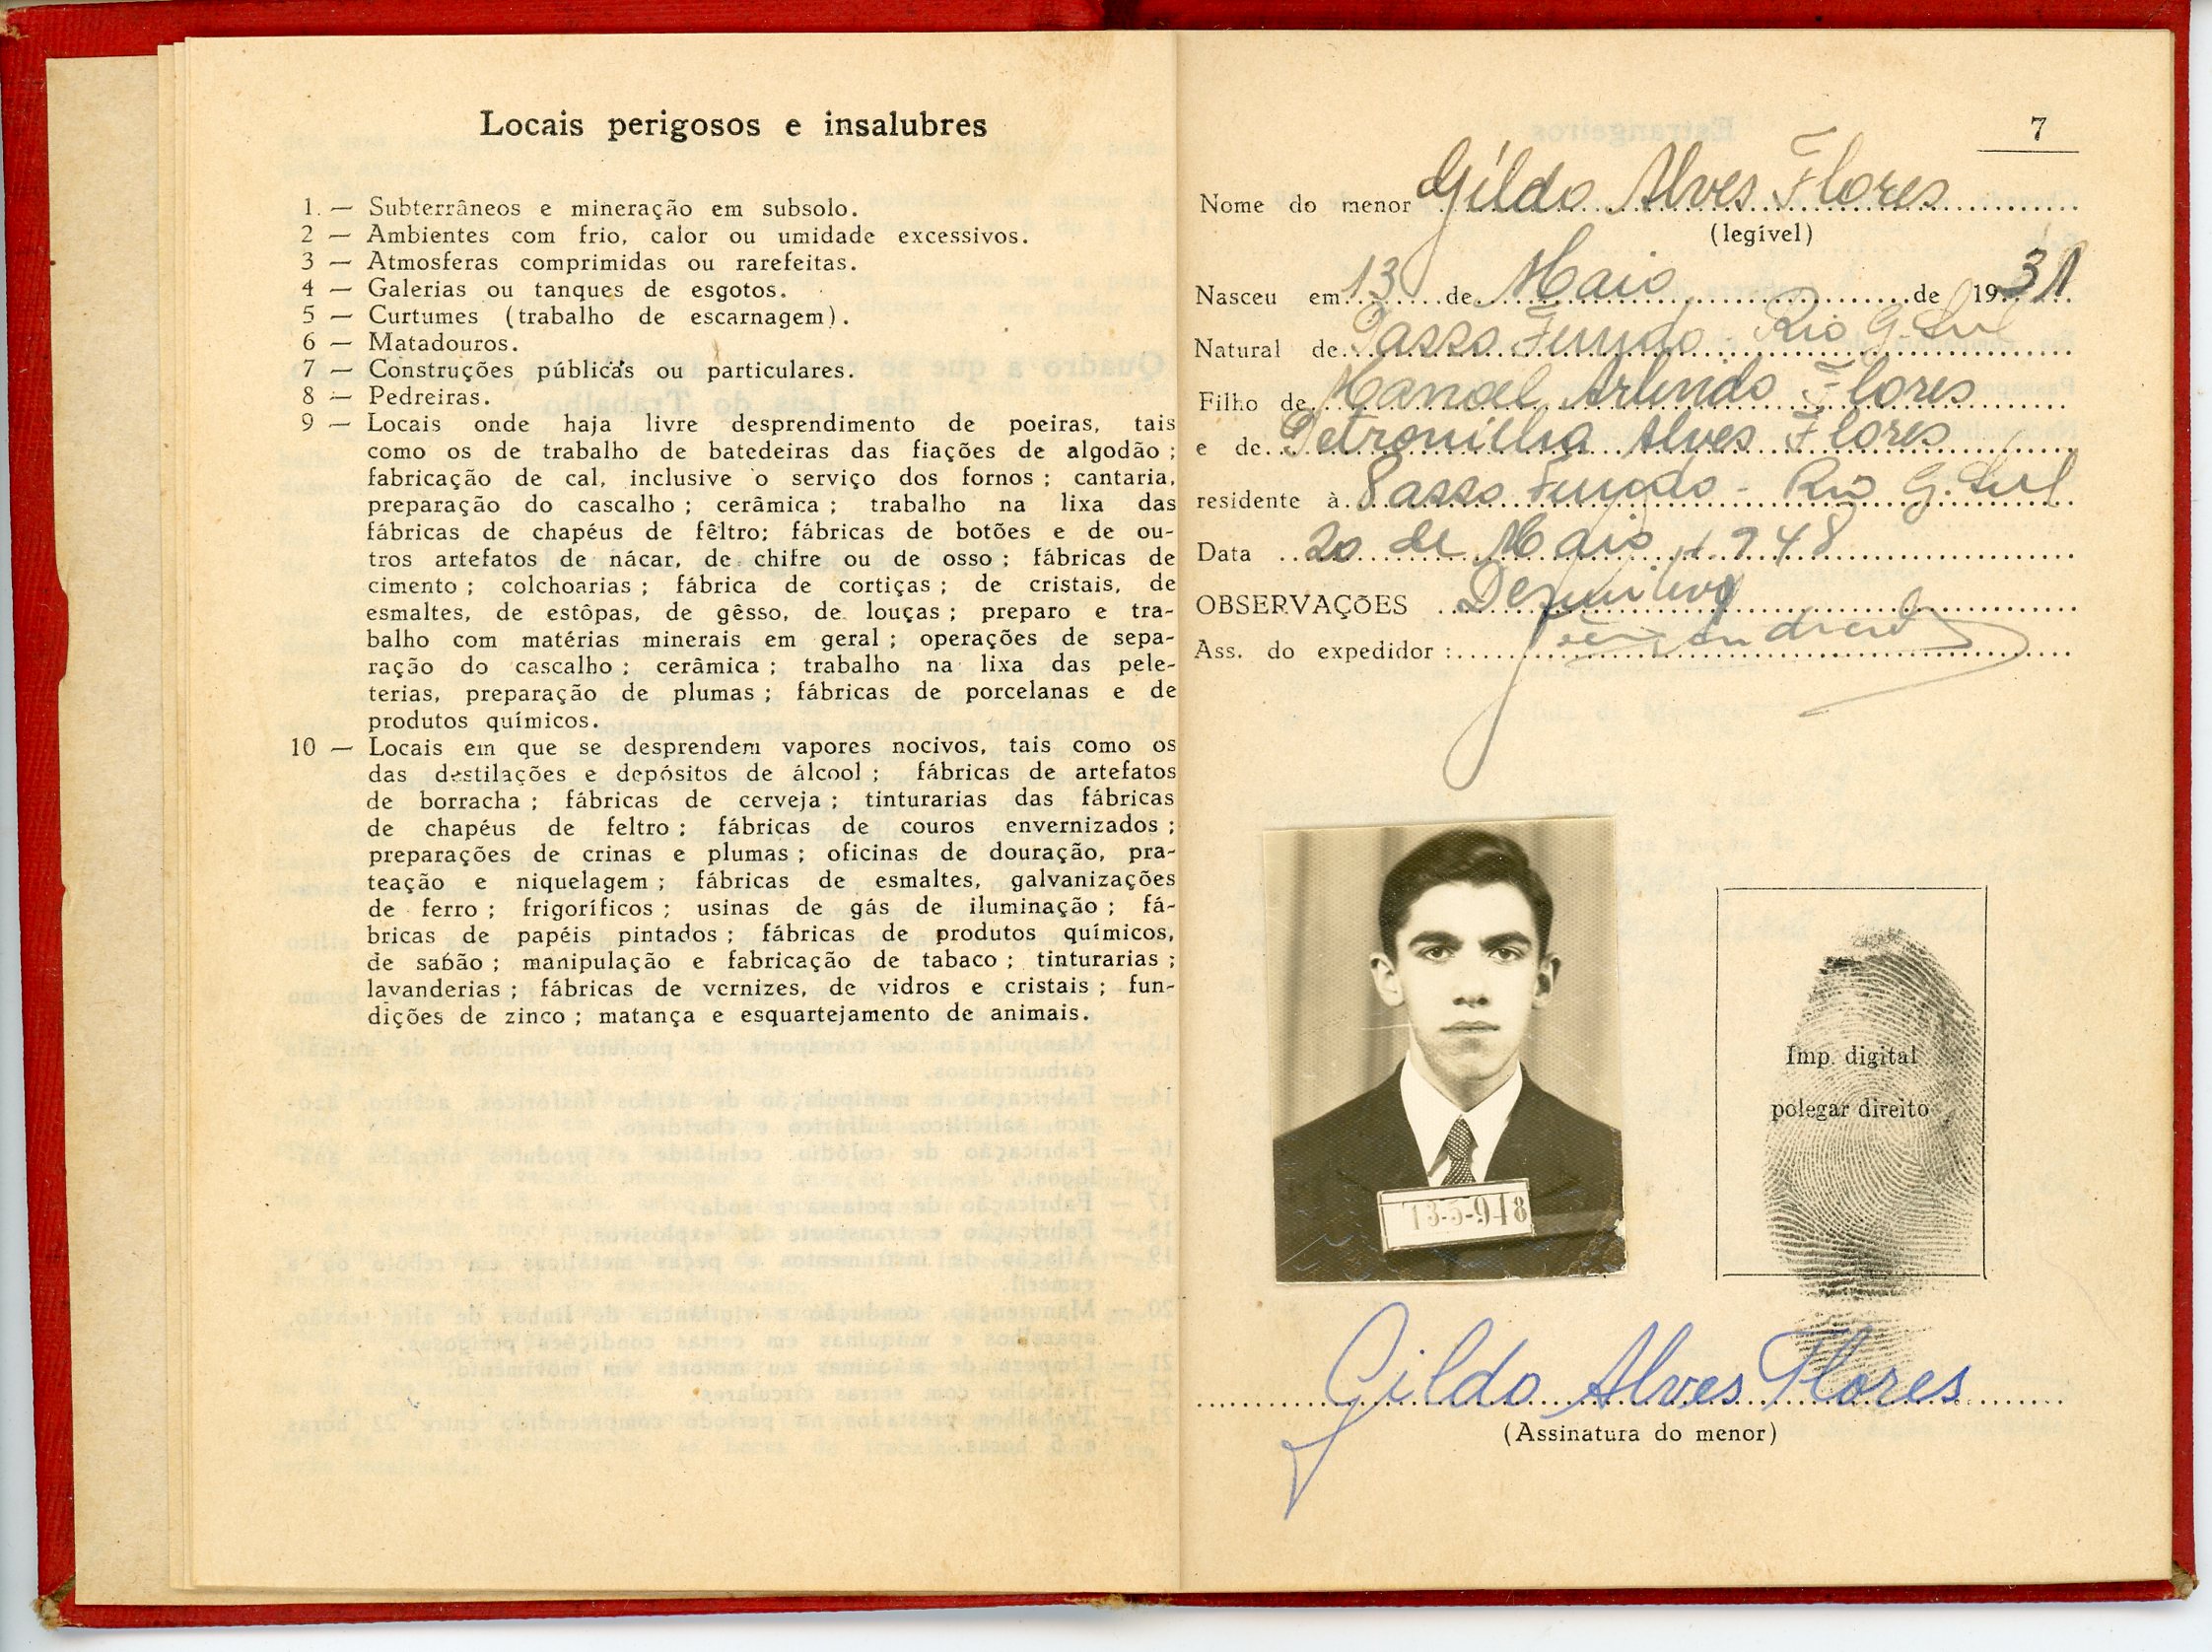 Locais perigosos e insalubres
1. — Subterrâneos e mineração em subsolo.
2 — Ambientes com frio, calor ou umidade excessivos.
3 — Atmosferas comprimidas ou rarefeitas.
4 — Galerias ou tanques de esgotos.
5 — Curtumes (trabalho de escarnagem).
6 — Matadouros.
7 — Construções públicas ou particulares.
8 — Pedreiras.
9 — Locais onde haja livre desprendimento de poeiras, tais
como os de trabalho de batedeiras das fiações de algodão ;
fabricação de cal, inclusive o serviço dos fornos ; cantaria,
preparação do cascalho ; cerâmica ; trabalho na lixa das
fábricas de chapéus de fêltro; fábricas de botões e de ou-
tros artefatos de nácar, de chifre ou de osso ; fábricas de
cimento ; colchoarias ; fábrica de cortiças ; de cristais, de
esmaltes, de estôpas, de gêsso, de louças ; preparo e tra-
balho com matérias minerais em geral ; operações de sepa-
ração do cascalho ; cerâmica ; trabalho na lixa das pele-
terias, preparação de plumas ; fábricas de porcelanas e de
produtos químicos.
10 — Locais em que se desprendem vapores nocivos, tais como os
das destilações e depósitos de álcool ; fábricas de artefatos
de borracha ; fábricas de cerveja ; tinturarias das fábricas
de chapéus de feltro ; fábricas de couros envernizados ;
preparações de crinas e plumas ; oficinas de douração, pra-
teação e niquelagem ; fábricas de esmaltes, galvanizações
de ferro ; frigoríficos ; usinas de gás de iluminação ; fá-
bricas de papéis pintados ; fábricas de produtos químicos,
de sabão ; manipulação e fabricação de tabaco ; tinturarias ;
lavanderias ; fábricas de vernizes, de vidros e cristais ; fun-
dições de zinco ; matança e esquartejamento de animais.
7
Nome do menor Gildo Alves Flores
(legível)
Nasceu em 13 de Maio de 1931
Natural de Passo Fundo - Rio G. Sul
Filho de Manoel Arlindo Flores
e de Petronilha Alves Flores
residente à Passo Fundo - Rio G. Sul
Data 20 de Maio 1948
OBSERVAÇÕES Definitiva
Ass. do expedidor :
13-5-948
Imp. digital
polegar direito
Gildo Alves Flores
(Assinatura do menor)